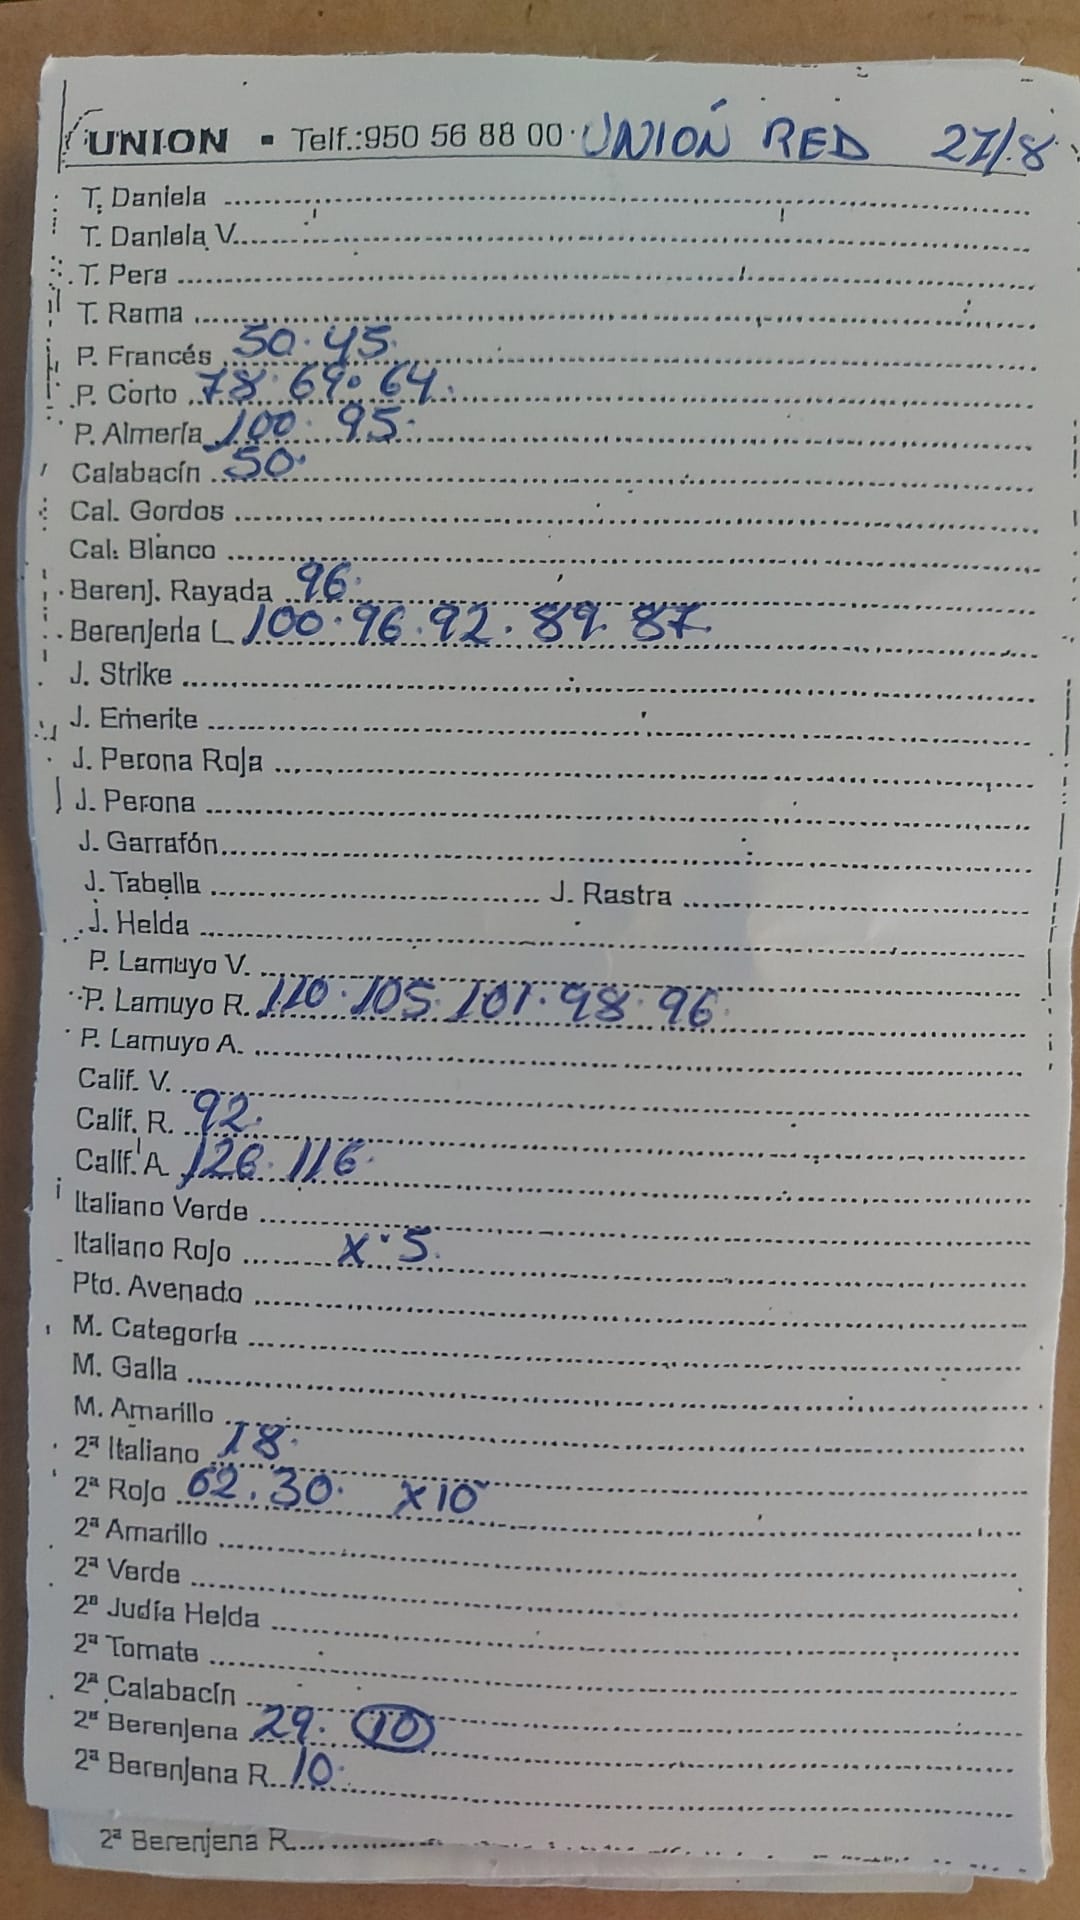 UNION ▪ Telf.:950 56 88 00 UNIÓN RED 27/8
T. Daniela
T. Daniela V.
T. Pera
T. Rama
P. Francés 50. 45.
P. Corto 78. 69. 64.
P. Almería 100. 95.
Calabacín 50.
Cal. Gordos
Cal. Blanco
Berenj. Rayada 96.
Berenjena L 100. 96. 92. 89. 87.
J. Strike
J. Emerite
J. Perona Roja
J. Perona
J. Garrafón
J. Tabella J. Rastra
J. Helda
P. Lamuyo V.
P. Lamuyo R. 110. 105. 101. 98. 96.
P. Lamuyo A.
Calif. V.
Calif. R. 92.
Calif. A 126. 116.
Italiano Verde
Italiano Rojo X. 5.
Pto. Avenado
M. Categoría
M. Galla
M. Amarillo
2ª Italiano 18.
2ª Rojo 62. 30. X10
2ª Amarillo
2ª Verde
2ª Judía Helda
2ª Tomate
2ª Calabacín
2ª Berenjena 29. 10
2ª Berenjena R. 10.
2ª Berenjena R.